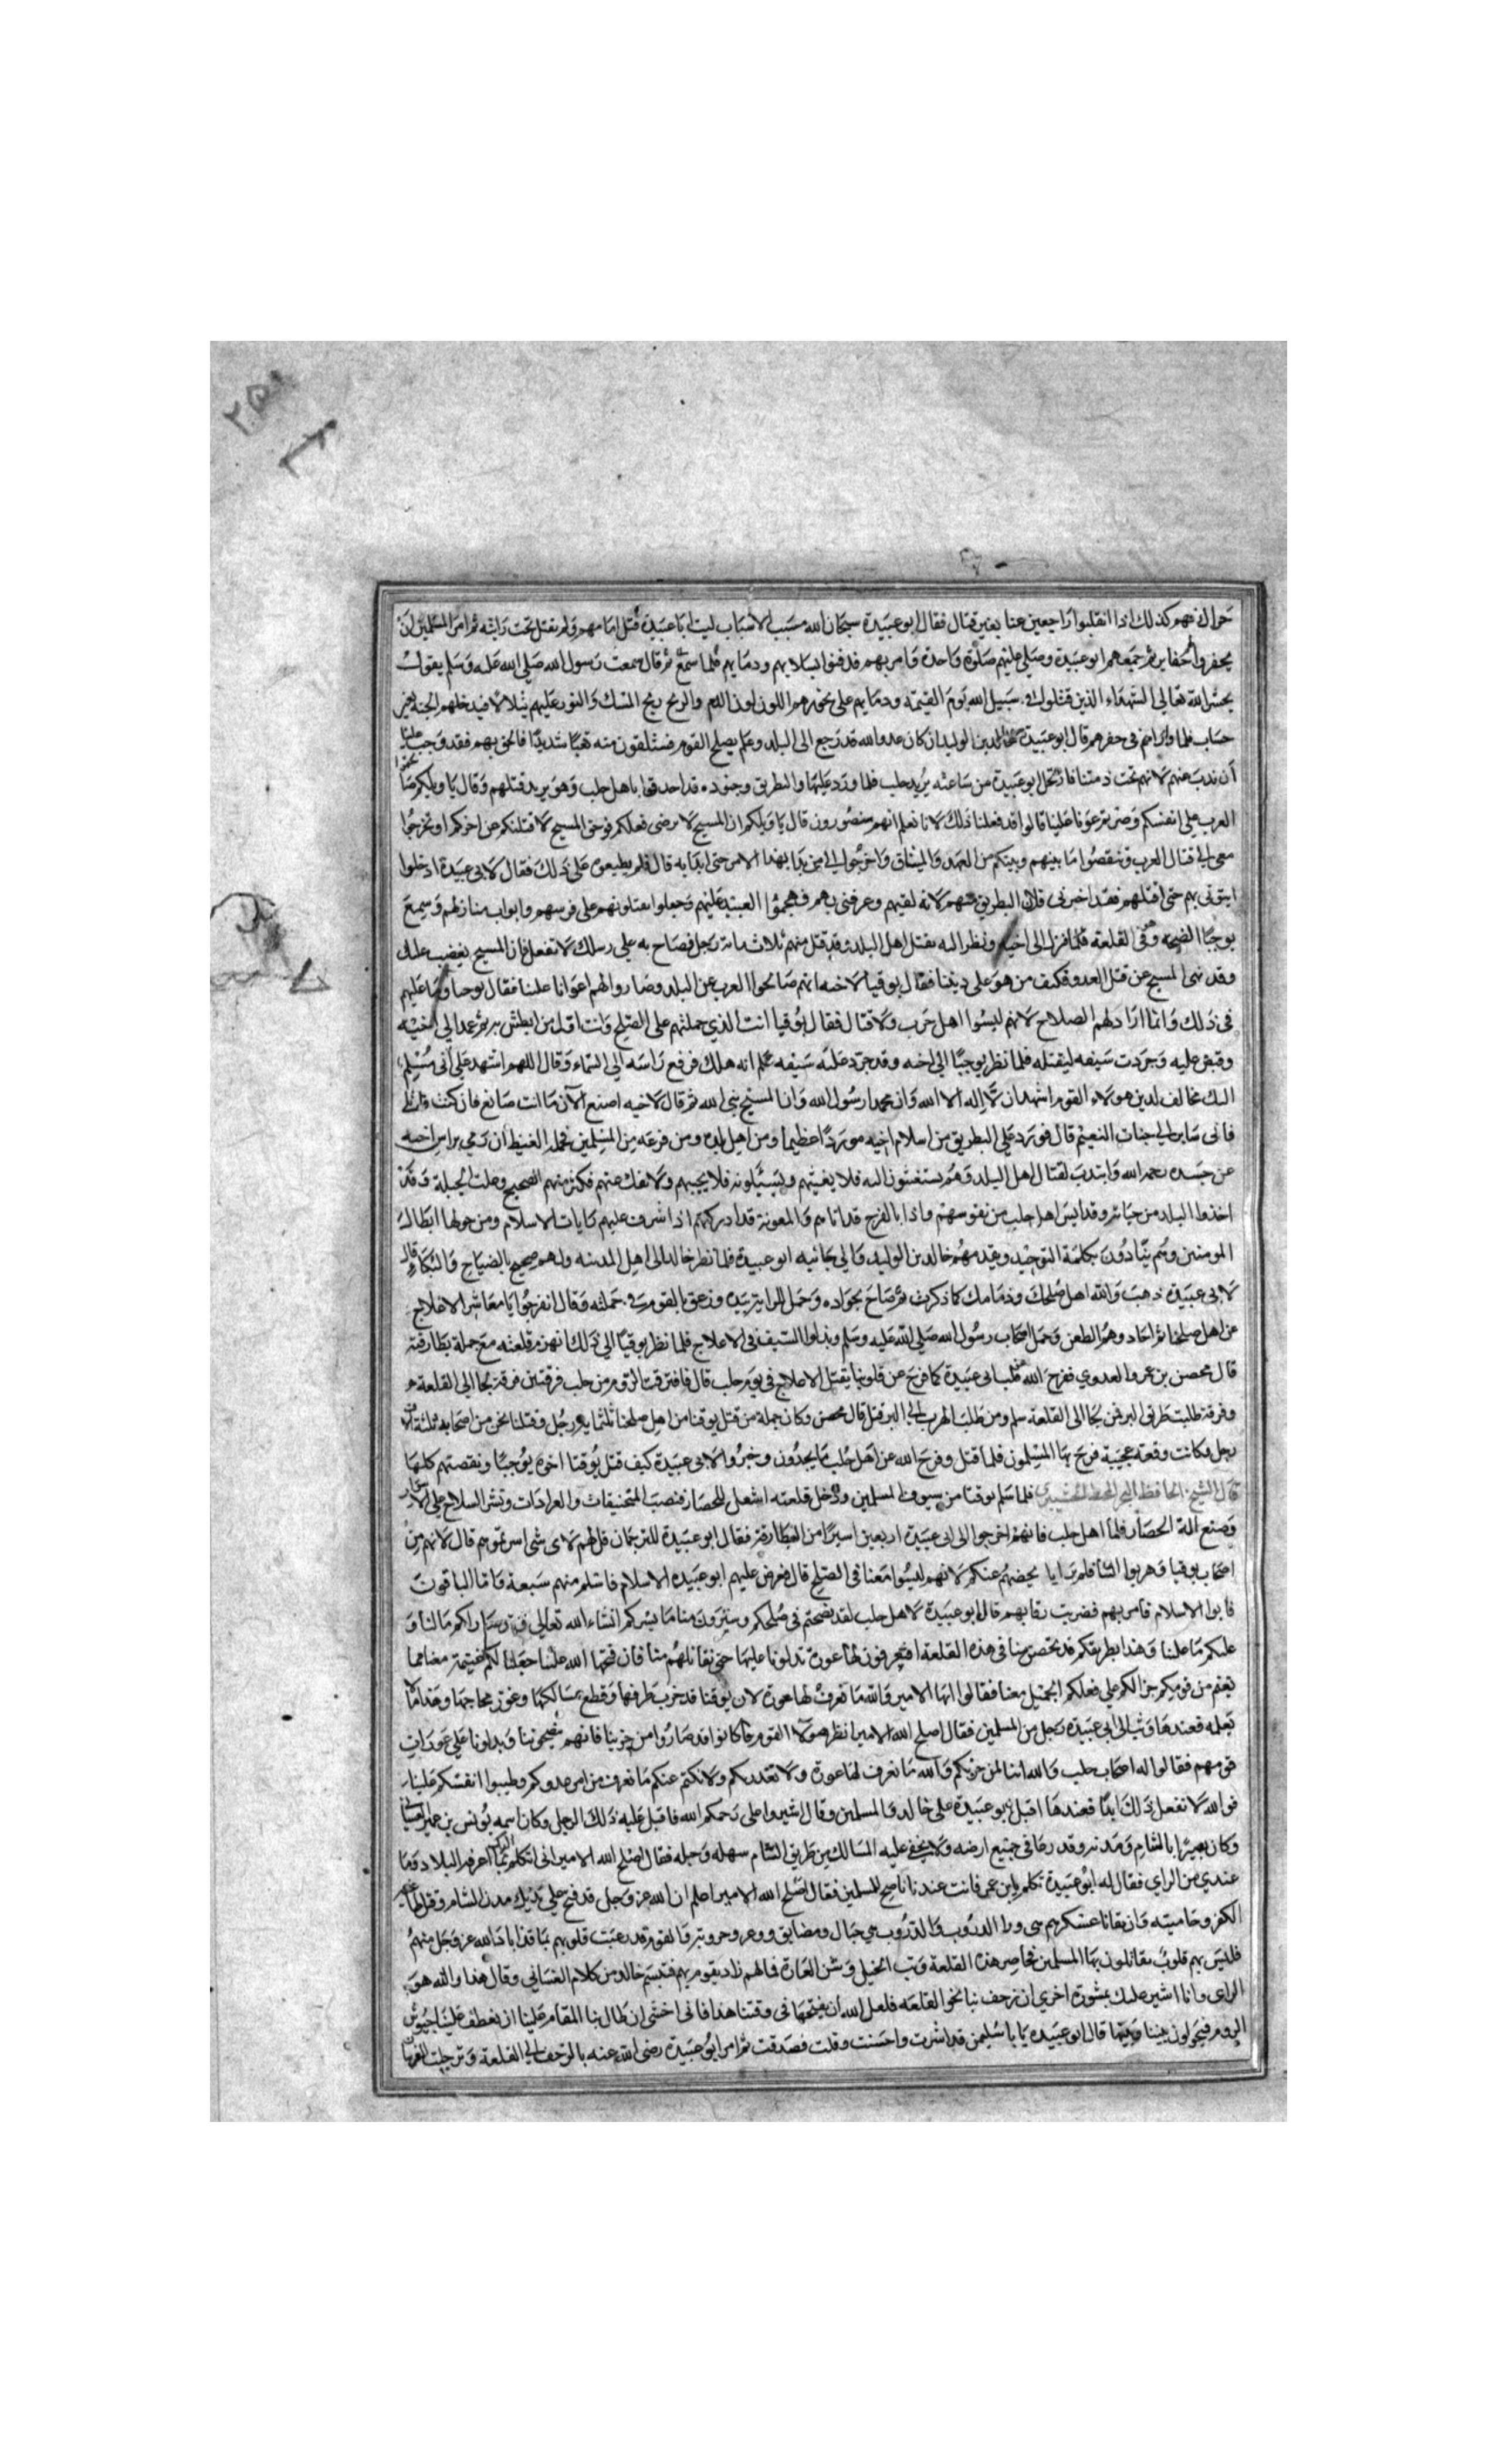 حراك فهم كذلك اذا انقلبوا راجعين عنا بغير قتال فقال ابو عبيدة سبحان الله مسبب الاسباب ليت ابا عبيدة قتل امامهم ولم يقتل تحت رايته ثم امر المسلمين ان
يحفروا حفاير ثم جمعهم ابو عبيدة وصلي عليهم صلوة واحدة وامر بهم فدفنوا بسلابهم ودمايهم فلما سمع ثم قال سمعت رسول الله صلي الله عليه وسلم يقول
يحشر الله تعالي الشهداء الذين قتلوا في سبيل الله يوم القيمة ودمايهم علي نحورهم اللون لون الدم والريح ريح المسك والنور عليهم يتلالا فيدخلهم الجنة بغير
حساب فلما واراهم في حفرهم قال ابو عبيدة لخالد بن الوليد ان كان عدو الله قد رجع الى البلد وعلم بصلح القوم فستلقون منه تعبا شديدا فالحق بهم فقد وجب علينا
ان نذب عنهم لانهم تحت ذمتنا فارتحل ابو عبيدة من ساعته يريد حلب فلما ورد عليها والبطريق وجنوده قد احدقوا باهل حلب وهو يريد قتلهم وقال يا ويلكم صالحتوا
العرب علي انفسكم وصرتم عونا علينا قالوا قد فعلنا ذلك لانا نعلم انهم منصورون قال يا ويلكم ان المسيح لا يرضى فعلكم فوحق المسيح لاقتلنكم عن اخركم او تخرجوا
معي الي قتال العرب وتنقضوا ما بينهم وبينكم من العهد والميثاق واخرجوا الي من بدا بهذا الامر حتى ابدا به قال فلم يطيعوه علي ذلك فقال لا عبيدة ادخلوا
ايتوني بهم حتى اقتلهم فقد اخبرني فلان البطريق عنهم لانه لقيهم وعرفني بهم فهجموا العبيد عليهم وجعلوا يقتلونهم على فرشهم وابواب منازلهم وسمع
يوحنا الضجة وهو في القلعة فلما نزل الى اخيه ونظر اليه يقتل اهل البلد وقد قتل منهم ثلاث ماية رجل فصاح به على رسلك لا تفعل فان المسيح يغضب عليك
وقد نهى المسيح عن قتل العدو فكيف من هو على ديننا فقال يوقنا لاخيه انهم صالحوا العرب عن البلد وصاروا لهم اعوانا علينا فقال يوحنا وما عليهم
في ذلك وانما ارادوا لهم الصلاح لانهم ليسوا اهل حرب ولا قتال فقال يوقنا انت الذي حملتهم على الصلح وانت اول من ابطش به ثم عدا الي اخيه
وقبض عليه وجردت سيفه ليقتله فلما نظر يوحنا الي اخيه وقد جرد عليه سيفه علم انه هلك فرفع راسه الي السماء وقال اللهم اشهد علي اني مسلم
اليك مخالف لدين هولاء القوم اشهد ان لا اله الا الله وان محمدا رسول الله وان المسيح نبي الله ثم قال لاخيه اصنع الان ما انت صانع فان كنت قاتلي
فاني ساير الي جنات النعيم قال فورد علي البطريق من اسلام اخيه موردا عظيما ومن اهل بلده ومن فزعه من المسلمين فحمله الغيظ ان رمي براس اخيه
عن جسده رحمه الله وابتدب لقتال اهل البلد وهم يستغيثون اليه فلا يغيثهم ويسئلونه فلا يجيبهم ولا ينفك عنهم فكثر منهم الضجيج وعلت الجلبة وقد
اخذوا البلد من جنباته وقد ايس اهل حلب من نفوسهم واذا بالفرج قد اتاهم والمعونة قد ادركتهم اذا اشرف عليهم رايات الاسلام ومن حولها ابطال
المومنين وهم ينادون بكلمة التوحيد ويقدمهم خالد بن الوليد والي جانبه ابو عبيدة فلما نظر خالد الى اهل المدينه ولهم ضجيج بالصياح والبكاء قال
لابي عبيدة ذهبت والله اهل صلحك وذمامك كما ذكرت ثم صاح بجواده وحمل الراية بيده وزعق بالقوم في حملته وقال انفرجوا يا معاشر الاعلاج
عن اهل صلحنا ثم اجاد وهو الطعن وحمل اصحاب رسول الله صلي الله عليه وسلم وبذلوا السيف في الاعلاج فلما نظر يوقنا الي ذلك انهزم قلعته مع جملة بطارقته
قال محصن بن عمرو العدوي ففرح الله قلب ابي عبيدة كما فرح عن قلوبنا بقتل الاعلاج في يوم حلب قال فافترقت الروم من حلب فرقتين فرقة لجا الى القلعة
وفرقة طلبت طرق البر فمن لجا الى القلعة سلم ومن طلب الهرب الي البر قتل قال محصن وكان جملة من قتل يوقنا من اهل صلحنا ثلثماية رجل وقتلنا نحن من اصحابه ثلثة الاف
رجل وكانت وقعة عجيبة فرح بها المسلمون فلما قتل وفرج الله عن اهل حلب ما يجدون وخبروا لابي عبيدة كيف قتل يوقنا اخوه يوحنا وقصتهم كلها
قال الشيخ الحافظ فلما سلم يوقنا من سيوف المسلمين ودخل قلعته اشتغل للحصار فنصب المنجنيقات والعرادات ونشر السلاح على الاسوار
وصنع الة الحصار فلما اهل حلب فانهم اخرجوا الى ابي عبيدة اربعين اسيرا من البطارقة فقال ابو عبيدة للترجمان قل لهم لاي شي اسرتموهم قال لانهم من
اصحاب يوقنا وهربوا الينا فلم نر ايا نخفيهم عنكم لانهم ليسوا معنا في الصلح قال فعرض عليهم ابو عبيده الاسلام فاسلم منهم سبعة واما الباقون
فابوا الاسلام فامر بهم فضربت رقابهم قال ابو عبيدة لاهل حلب لقد نصحتم في صلحكم وسترون منا ما يسركم انشاء الله تعالي وقد صار لكم ما لنا و
عليكم ما علينا وهذا بطريقكم قد تحصن منا في هذه القلعة افتعرفون لها عورة تدلونا عليها حتى نقاتلهم منها فان فتحها الله علينا جعلنا لكم غنيمة
بغنم من قومكم جزا لكم علي فعلكم الجميل معنا فقالوا ايها الامير والله ما نعرف لها عورة لان يوقنا قد خرب طرقها وقطع مسالكها وعور فجاجها وهذا ما
نعلمه فعندها وثب الى ابي عبيده رجل من المسلمين فقال اصلح الله الامير انظر هولا القوم فان كانوا قد صاروا من حزبنا فانهم نصحونا ويدلونا علي عورات
قومهم فقالوا له اصحاب حلب والله اننا لمن حزبكم والله ما نعرف لها عورة ولا نغدر بكم ولا نكتم عنكم ما نعرف من امر عدوكم وطيبوا انفسكم علينا
فوالله لا نفعل ذلك ابدا فعندها اقبل ابو عبيدة على خالد والمسلمين وقال اشيروا علي رحمكم الله فاقبل عليه ذلك الرجل وكان اسمه يونس بن عمرو الغساني
وكان بصيرا بالشام ومدنه وقد رعا في جميع ارضه ولا يخفى عليه المسالك من طريق الشام سهله وجبله فقال اصلح الله الامير اني اتكلم بما اعرفه البلاد وما
عندي من الراي فقال له ابو عبيدة تكلم يا بن عمر فانت عندنا ناصح للمسلمين فقال اصلح الله الامير اعلم ان الله عز وجل قد فتح علي يديك مدن الشام وقتل
الكفر وحاميته وان بقايا عسكرهم من ورا الدروب والدروب هي جبال ومضايق ووعر وحزونة والقوم قد رعبت قلوبهم بما قد اباد الله عز وجل منهم
فليس بهم قلوب يقاتلون بها المسلمين فحاصر هذه القلعة وبث الخيل وشن الغارة فما لهم زاد يقوم بهم فتبسم خالد من كلام الغساني وقال هذا والله هو
الراي وانا اشير عليك بمشورة اخري ان نزحف بنا نحو القلعه فلعل الله ان يفتحها في وقتنا هذا فاني اخشى ان طال بنا المقام علينا ان يعطف علينا جيوش
الروم فيحولون بيننا وبينها قال ابو عبيده يا با سليمن قد اشرت واحسنت وقلت فصدقت ثم امر ابو عبيدة رضي الله عنه بالزحف الي القلعة وترجلت الفرسان